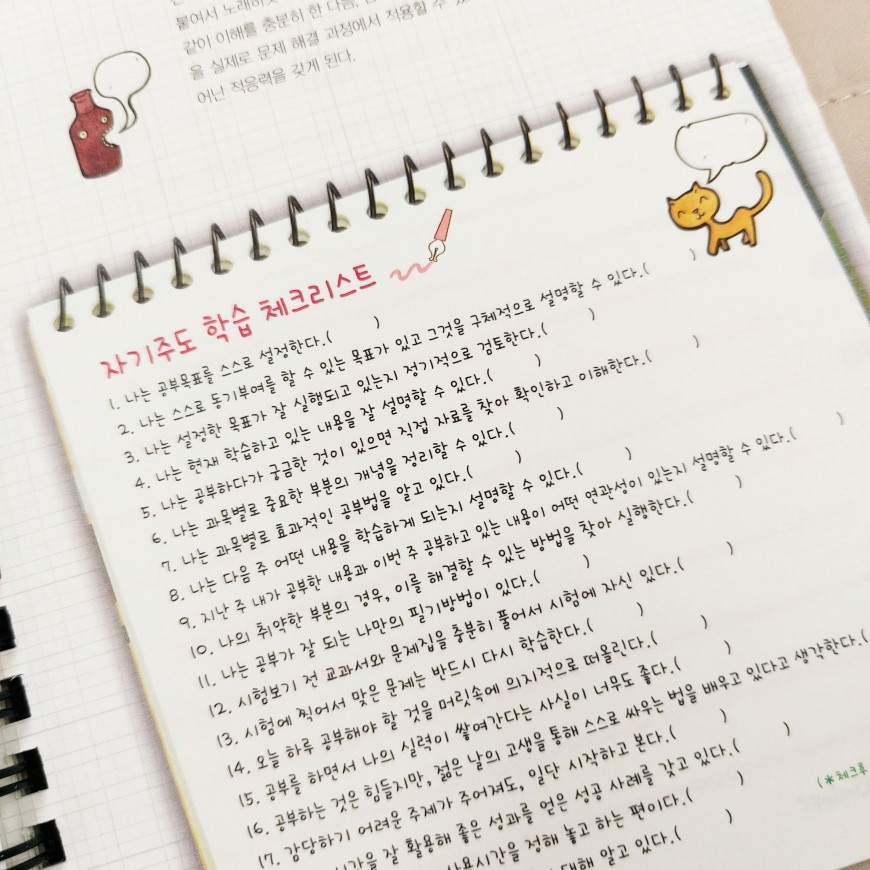 붙여서 노래하듯
같이 이해를 충분히 한 다음,
을 실제로 문제 해결 과정에서 적용할 수
어난 적응력을 갖게 된다.
자기주도 학습 체크리스트
1. 나는 공부목표를 스스로 설정한다.( )
2. 나는 스스로 동기부여를 할 수 있는 목표가 있고 그것을 구체적으로 설명할 수 있다.( )
3. 나는 설정한 목표가 잘 실행되고 있는지 정기적으로 검토한다.( )
4. 나는 현재 학습하고 있는 내용을 잘 설명할 수 있다.( )
5. 나는 공부하다가 궁금한 것이 있으면 직접 자료를 찾아 확인하고 이해한다.( )
6. 나는 과목별로 중요한 부분의 개념을 정리할 수 있다.( )
7. 나는 과목별로 효과적인 공부법을 알고 있다.( )
8. 나는 다음 주 어떤 내용을 학습하게 되는지 설명할 수 있다.( )
9. 지난 주 내가 공부한 내용과 이번 주 공부하고 있는 내용이 어떤 연관성이 있는지 설명할 수 있다.( )
10. 나의 취약한 부분의 경우, 이를 해결할 수 있는 방법을 찾아 실행한다.( )
11. 나는 공부가 잘 되는 나만의 필기방법이 있다.( )
12. 시험보기 전 교과서와 문제집을 충분히 풀어서 시험에 자신 있다.( )
13. 시험에 찍어서 맞은 문제는 반드시 다시 학습한다.( )
14. 오늘 하루 공부해야 할 것을 머릿속에 의지적으로 떠올린다.( )
15. 공부를 하면서 나의 실력이 쌓여간다는 사실이 너무도 좋다.( )
16. 공부하는 것은 힘들지만, 젊은 날의 고생을 통해 스스로 싸우는 법을 배우고 있다고 생각한다.(
17. 감당하기 어려운 주제가 주어져도, 일단 시작하고 본다.( )
시간을 잘 활용해 좋은 성과를 얻은 성공 사례를 갖고 있다.( )
사용시간을 정해 놓고 하는 편이다.( )
대해 알고 있다.( )
(*체크후